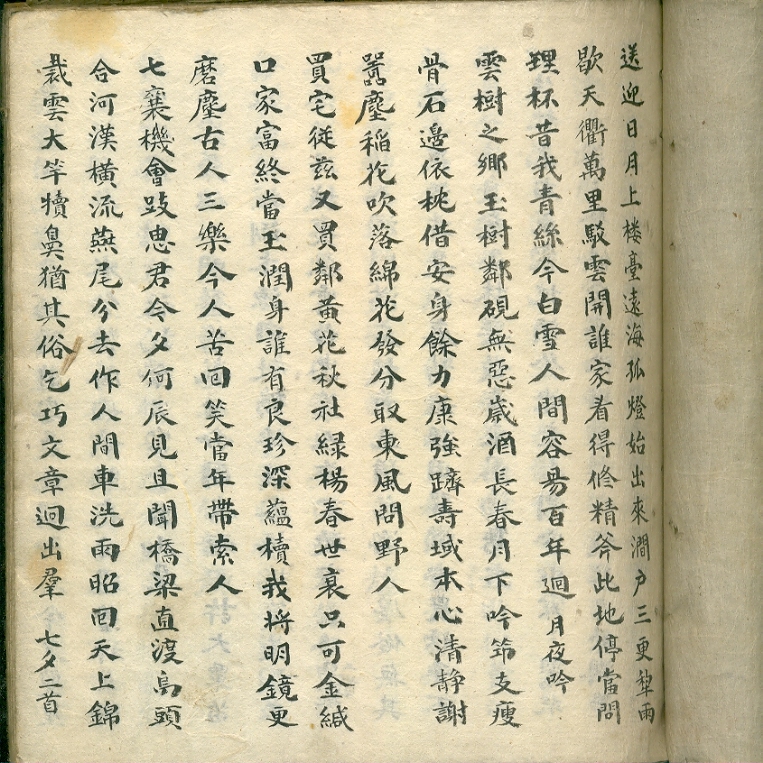 送迎日月上楼臺遠海孤燈始出來澗戶三更犁雨
歇天衢萬里駁雲開誰家看得修精斧此地停當問
理杯昔我青絲今白雪人間容易百年廻月夜吟
雲樹之鄉玉樹鄰硯無惡歲酒長春月下吟筇支瘦
骨石邊依枕借安身餘力康強躋壽域本心清靜謝
囂塵稲花吹落綿花發分取東風問野人
買宅從玆又買鄰黃花秋社緑楊春世衰只可金緘
口家富終當玉潤身誰有良珍深蘊櫝我將明鏡更
磨塵古人三樂今人苦回笑當年帶索人
七襄機會跂思君令夕何辰見且聞橋梁直渡烏頭
合河漢橫流燕尾分去作人間車洗雨昭回天上錦
裁雲大竿犢鼻猶其俗乞巧文章迥出羣 七夕二首